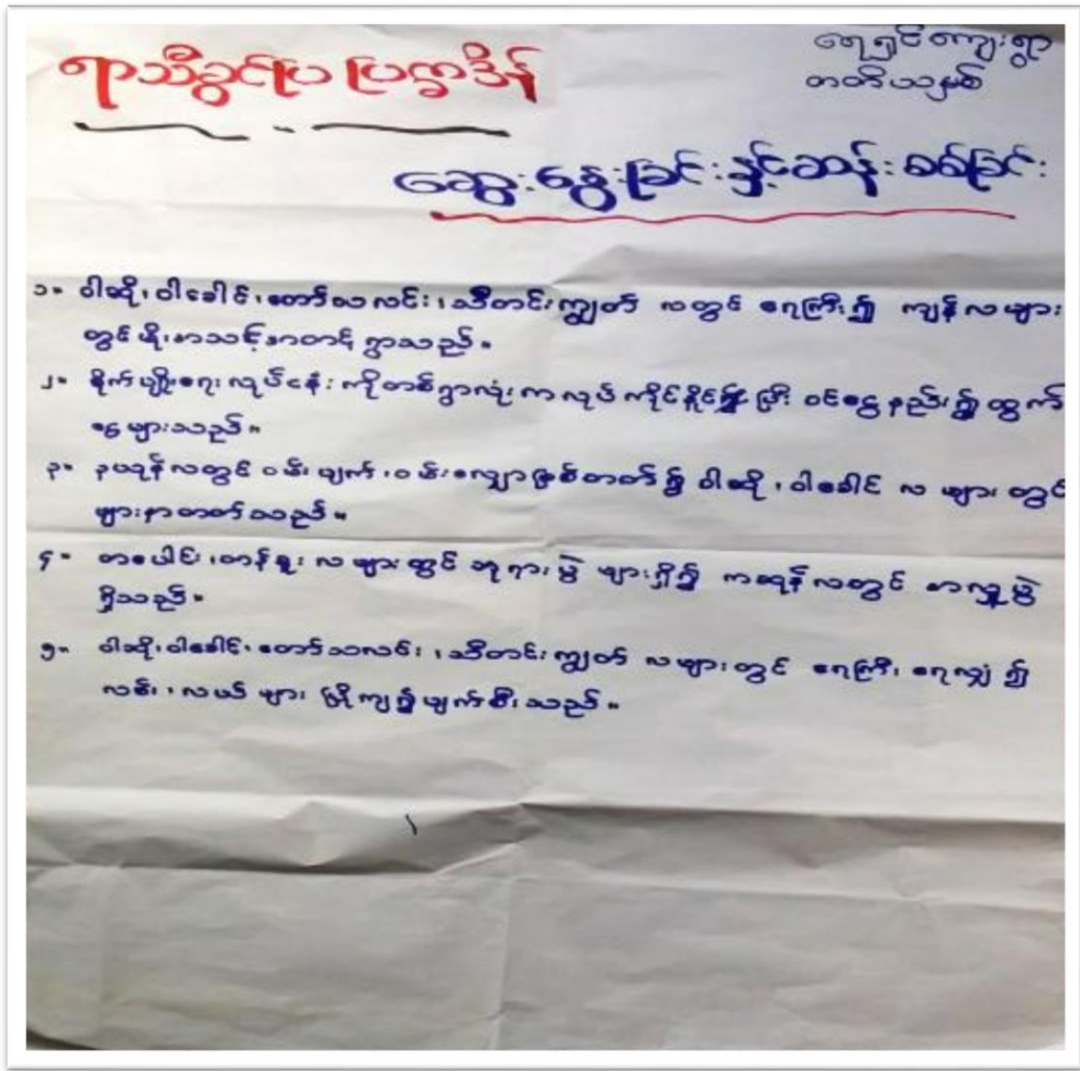 ရာသီခွင်ပြ ပြက္ခဒိန်
ရေရှင်ကျေးရွာ
တတိယနှစ်
ဆွေးနွေးခြင်းနှင့်ဆန်းစစ်ခြင်း
၁။ ဝါဆို၊ ဝါခေါင်၊ တော်သလင်း၊ သီတင်းကျွတ် လတွင် ရေကြီး၍ ကျန်လများ
တွင် မိုးအသင့်အတင့် ရွာသည်။
၂။ စိုက်ပျိုးရေး လုပ်ငန်း ကိုတစ်ရွာလုံး ကလုပ် ကိုင်နိုင်၍ ပြီး ဝင်ငွေ နည်း၍ ထွက်
ငွေ များသည်။
၃။ နယုန်လတွင် ဝမ်းပျက်၊ ဝမ်းလျှော ဖြစ်တတ်၍ ဝါဆို၊ ဝါခေါင် လ များ တွင်
ဖျားနာတတ်သည်။
၄။ တပေါင်း၊ တန်ခူး လ များတွင် ဘုရားပွဲ များရှိ၍ ကဆုန်လတွင် အလှူပွဲ
ရှိသည်။
၅။ ဝါဆို၊ ဝါခေါင်၊ တော်သလင်း၊ သီတင်းကျွတ် လများတွင် ရေကြီး၊ ရေလျှံ ၍
လမ်း၊ လယ် များ ပြိုကျ၍ပျက်စီးသည်။